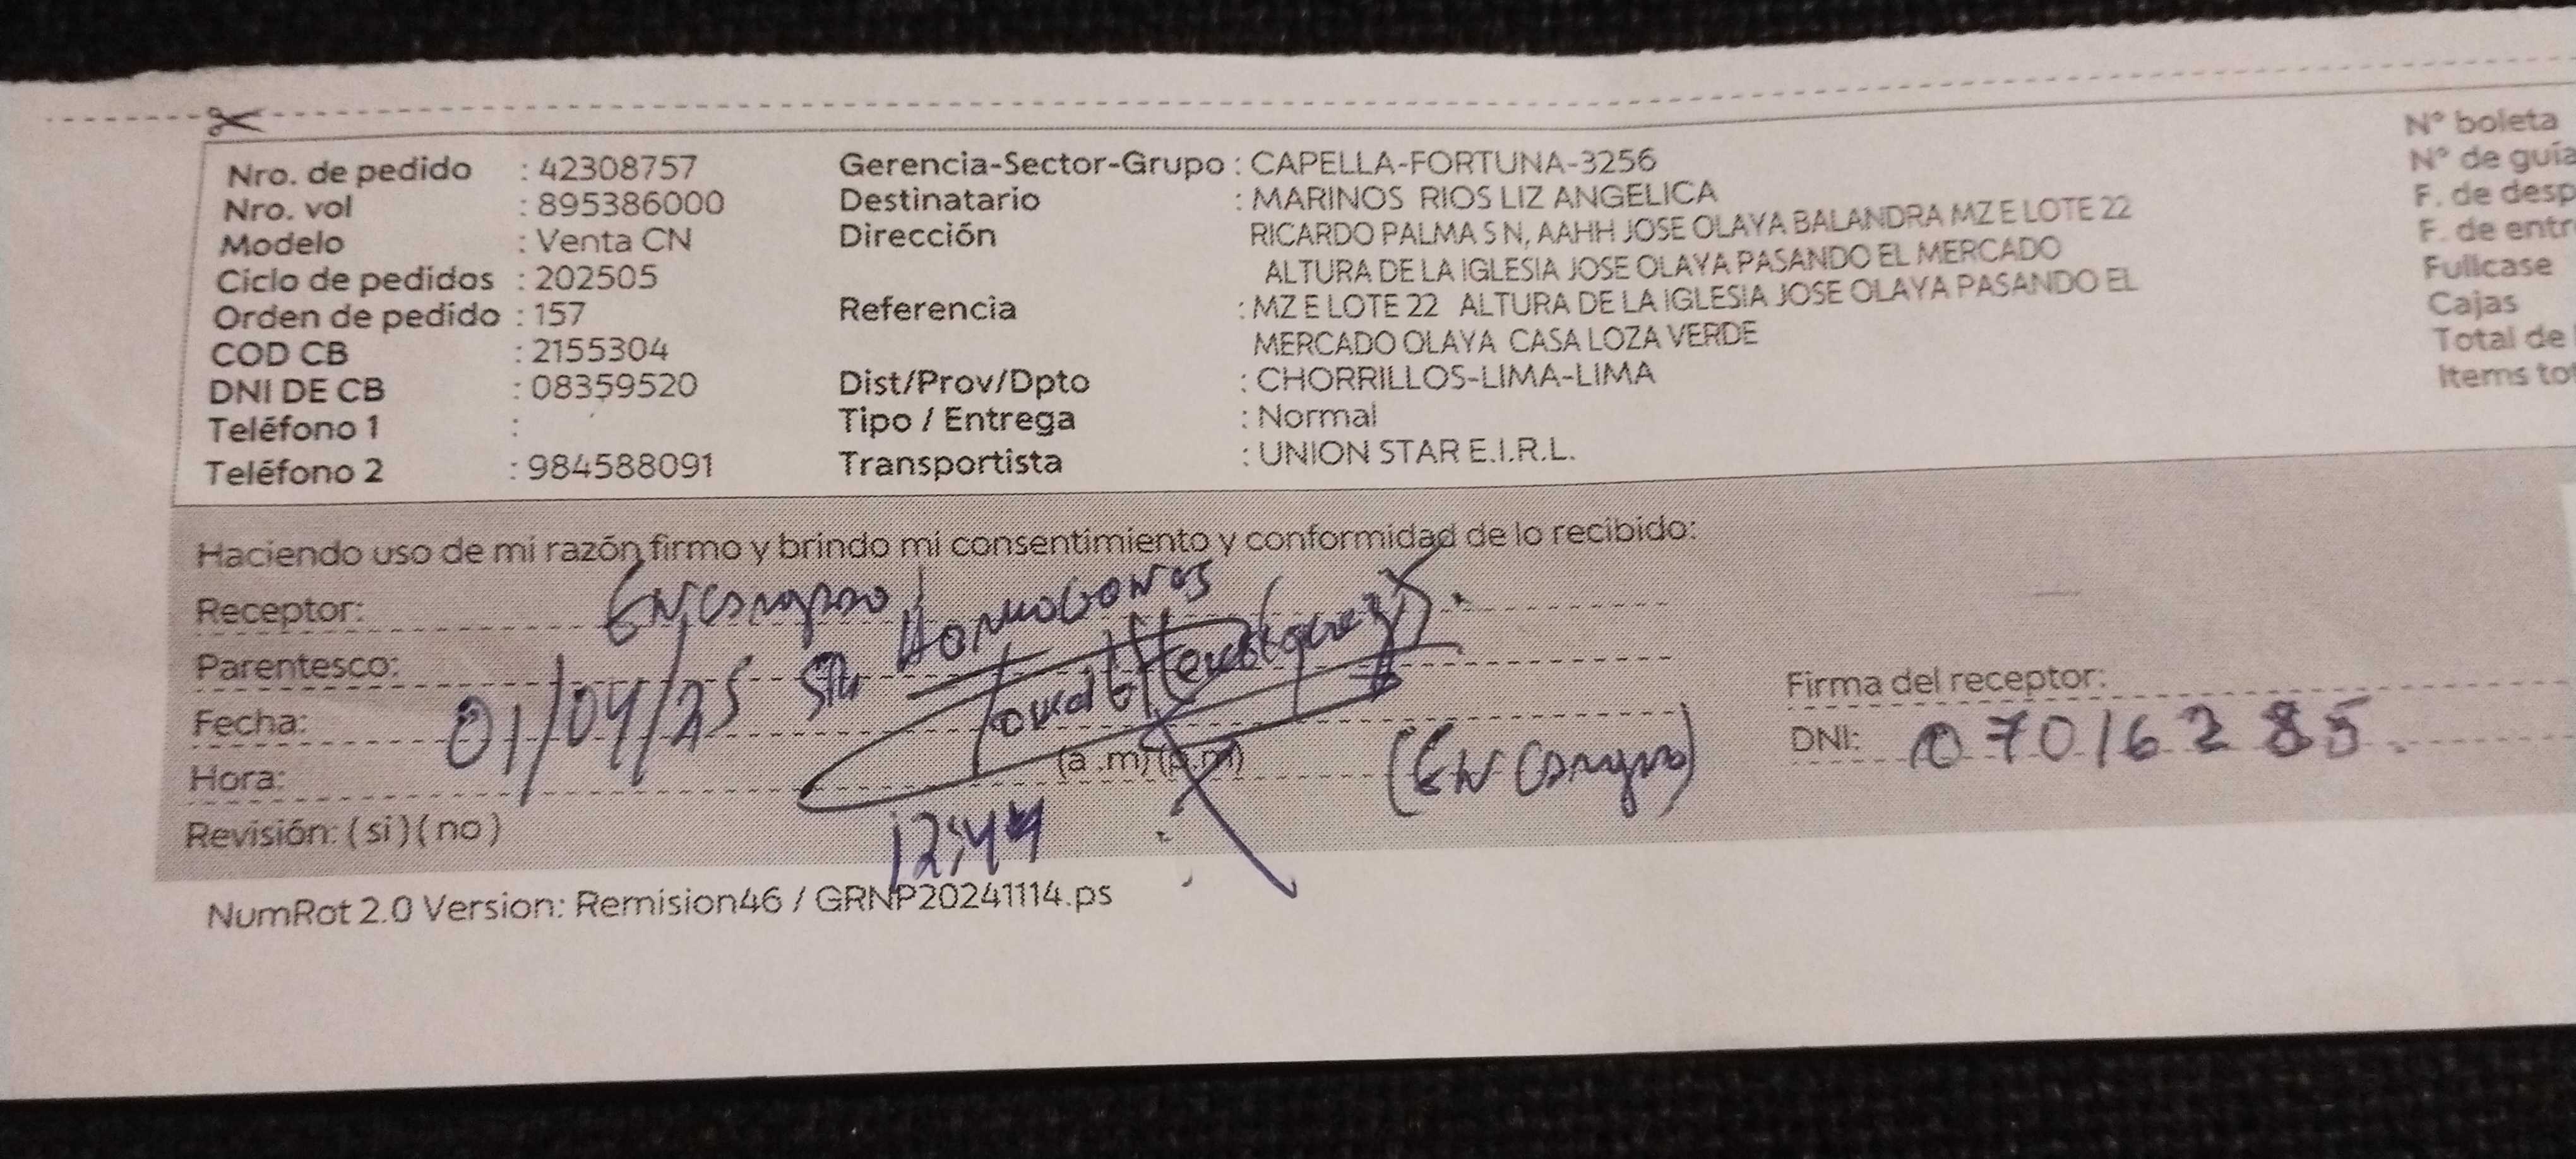 Nro. de pedido : 42308757
Nro. vol : 895386000
Modelo : Venta CN
Ciclo de pedidos : 202505
Orden de pedido : 157
COD CB : 2155304
DNI DE CB : 08359520
Teléfono 1 :
Teléfono 2 : 984588091
Gerencia-Sector-Grupo : CAPELLA-FORTUNA-3256
Destinatario : MARINOS RIOS LIZ ANGELICA
Dirección RICARDO PALMA S N, AAHH JOSE OLAYA BALANDRA MZ E LOTE 22
ALTURA DE LA IGLESIA JOSE OLAYA PASANDO EL MERCADO
Referencia : MZ E LOTE 22 ALTURA DE LA IGLESIA JOSE OLAYA PASANDO EL
MERCADO OLAYA CASA LOZA VERDE
Dist/Prov/Dpto : CHORRILLOS-LIMA-LIMA
Tipo / Entrega : Normal
Transportista : UNION STAR E.I.R.L.
N° boleta
N° de guía
F. de desp
F. de entr
Fullcase
Cajas
Total de
Items to
Haciendo uso de mi razón firmo y brindo mi consentimiento y conformidad de lo recibido:
Receptor:
Parentesco:
Fecha: 01/04/25
Hora: (a .m) (p.m)
12:44
Revisión: ( si ) ( no )
Firma del receptor:
DNI: 07016285
NumRot 2.0 Version: Remision46 / GRNP20241114.ps